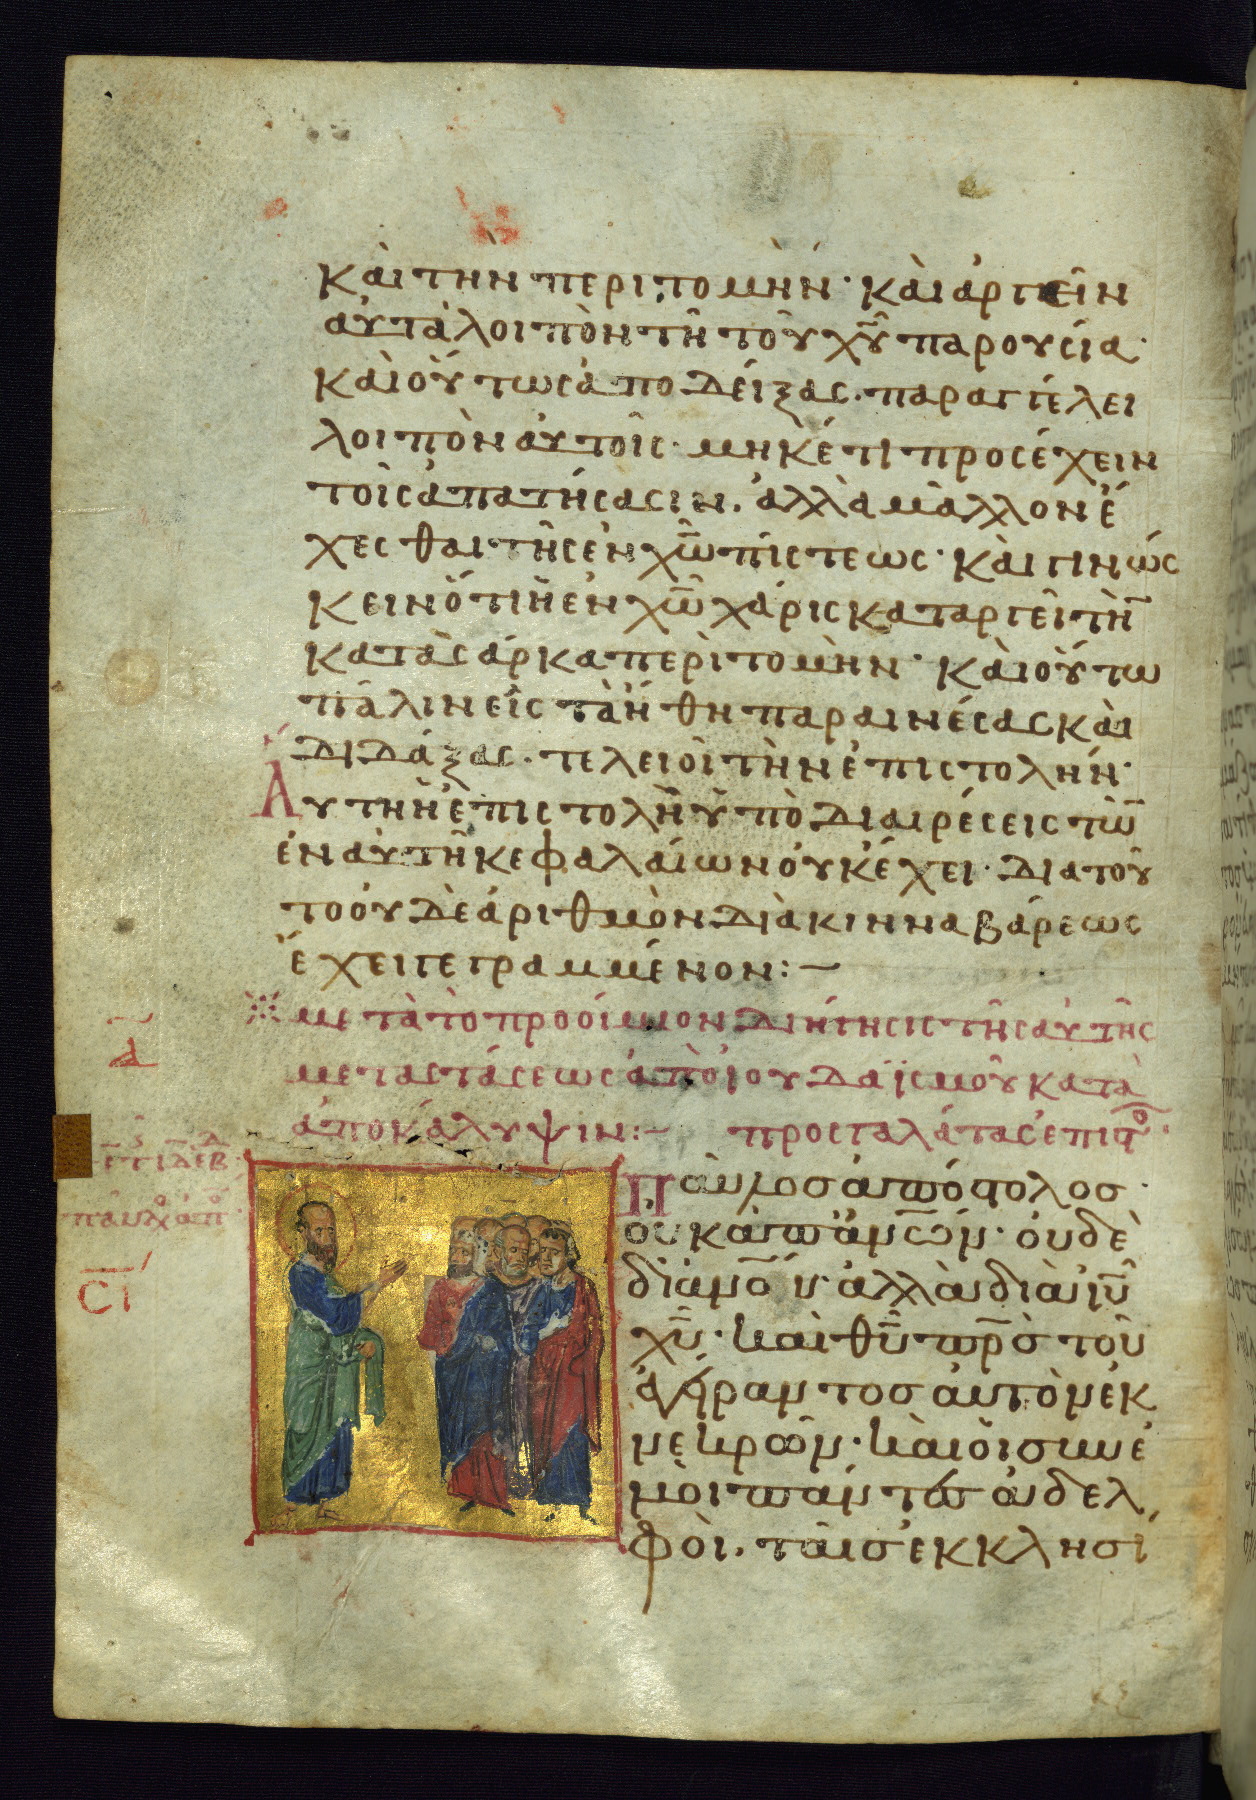 καὶ τὴν περιτομὴν· καὶ ἀργεῖν
αὐτὰ λοιπὸν τῆ τοῦ χυ παρουσία·
καὶ οὕτως ἀποδείξας· παραγγέλει
λοιπὸν αὐτοῖς· μηκέτι προσέχειν
τοῖς ἀπατήσασιν. ἀλλὰ μᾶλλον ἔ
χεσθαι τῆς ἐν χω πίστεως· καὶ γινώσ
κειν ὅτι ἡ ἐν χω χάρις καταργεῖ τὴ̅
κατὰ σάρκα περιτομὴν· καὶ οὕτω
πάλιν εἰς τὰ ἤθη παραινέσας καὶ
διδάξας· τελειοῖ τὴν ἐπιστολήν·
Αὕτη ἡ ἐπιστολὴ ὑποδιαιρέσεις τῶ̅
ἐν αὐτῆ κεφαλαίων οὐκ ἔχει· διατοῦ
το οὐδὲ ἀριθμὸν διὰ κινναβάρεως
ἔχει γεγραμμένον:—
μετὰ τὸ προοίμιον διήγησις τῆς αὐτῆς
α
μεταστάσεως ἀπὸ ἰουδαϊσμοῦ κατὰ
ἀποκάλυψιν:— προς γαλάτας ἐπιστο
Παῦλος ἀπόστολος·
οὐκ ἀπ' ἀνων· οὐδὲ
δι' ἀνου· ἀλλὰ διὰ ιυ
χυ· καὶ θυ πρς τοῦ
ἐγείραντος αὐτὸν ἐκ
νεκρῶν· καὶ οἱ σὺν ἐ
μοὶ πάντες ἀδελ
φοὶ. ταῖς ἐκκλησί